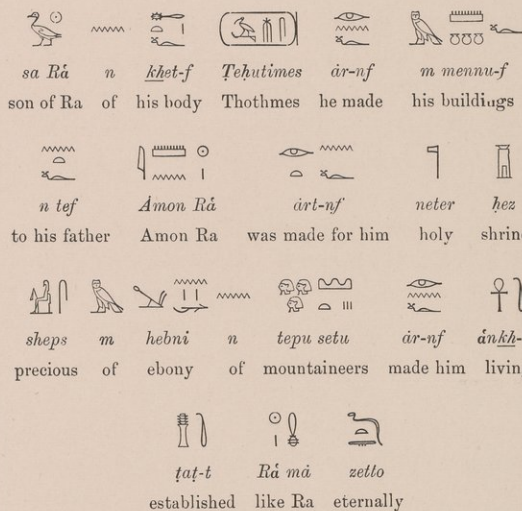 sa Rȧ n khet-f Ṭeḥutimes ȧr-nf m mennu-f
son of Ra of his body Thothmes he made his buildings
n tef Ȧmon Rȧ ȧrt-nf neter ḥez
to his father Amon Ra was made for him holy shrine
sheps m hebni n tepu setu ȧr-nf ȧnkh-
precious of ebony of mountaineers made him livin
ṭaṭ-t Rȧ mȧ zetto
established like Ra eternally